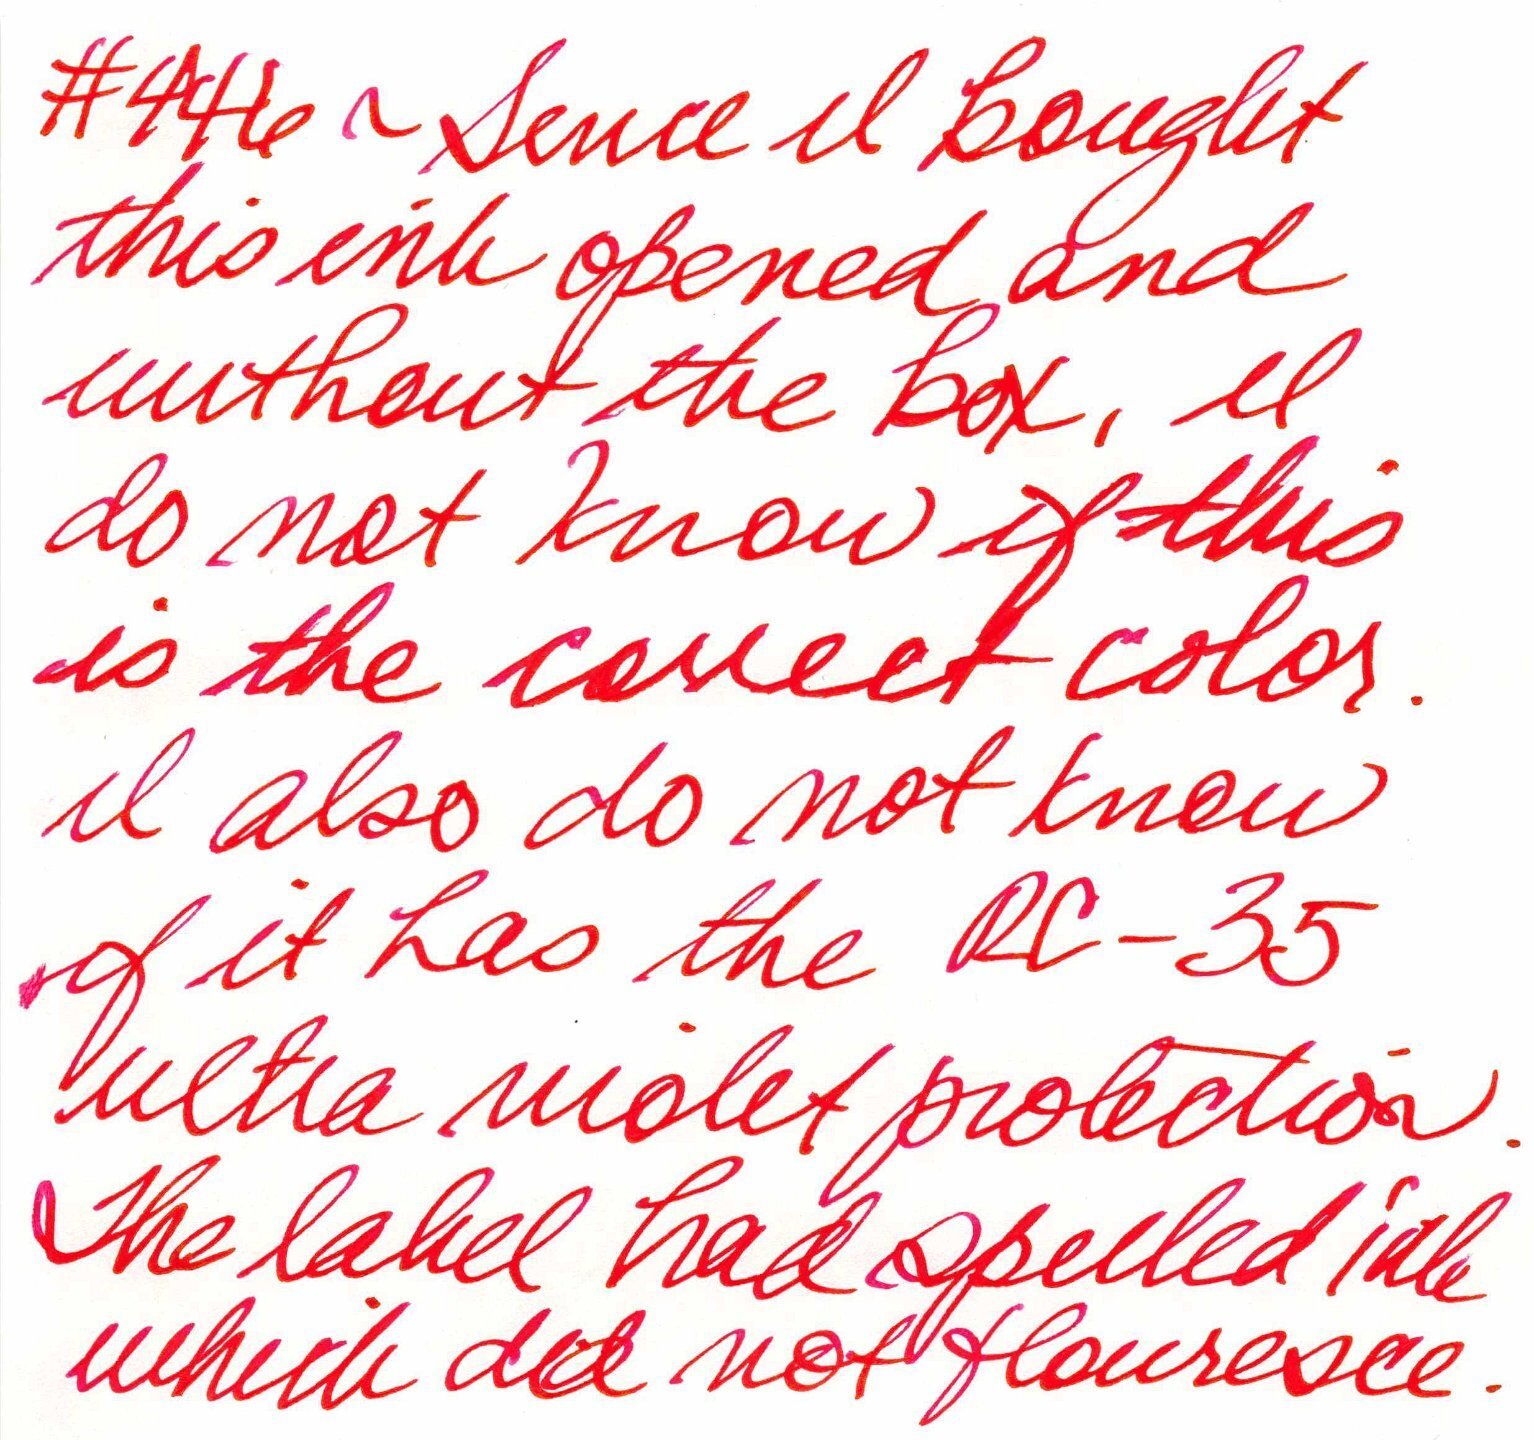 #446 ~ Since I bought
this ink opened and
without the box, I
do not know if this
is the correct color.
I also do not know
if it has the RC-35
ultra violet protection.
The label had spelled ink
which did not flouresce.